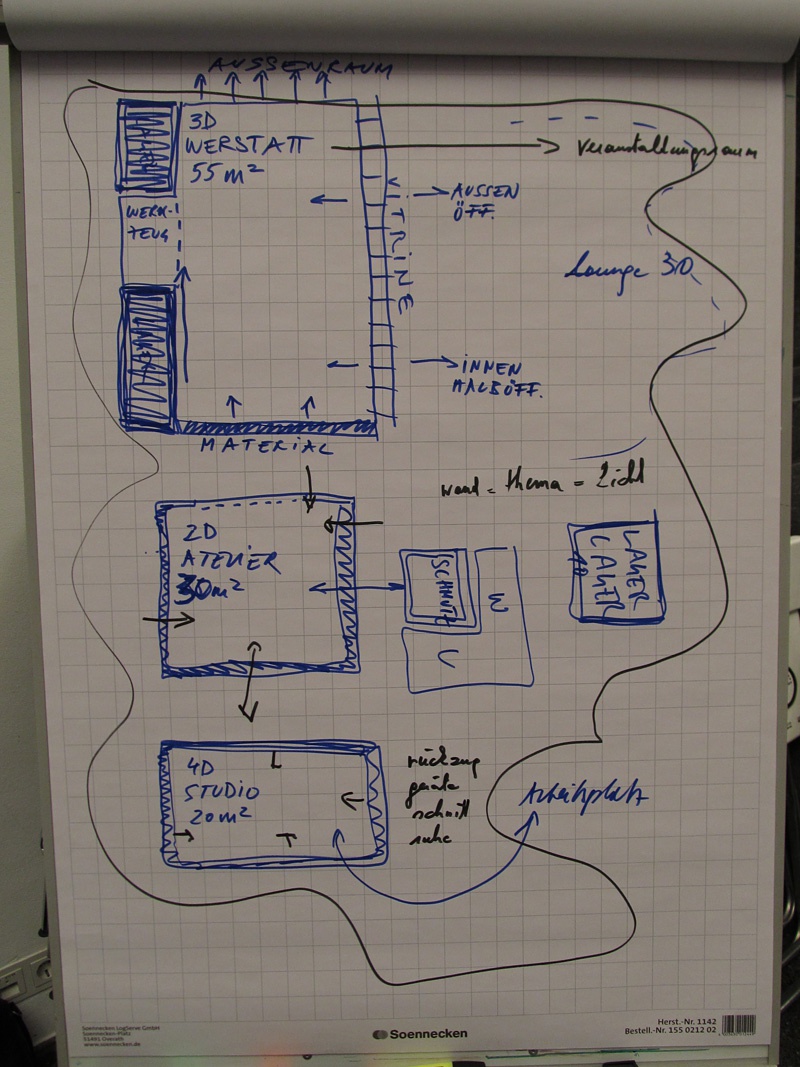 AUSSENRAUM
3D
WERSTATT
55 m²
Veranstaltungsraum
WERK-
ZEUG
VITRINE
AUSSEN
ÖFF.
Lounge 3D
INNEN
HALBÖFF.
MATERIAL
wand = thema = Licht
2D
ATELIER
30m²
SCHMUTZ
W
C
LAGER
LAGER
4D
STUDIO
20m²
rückzug
geräte
schnitt
ruhe
Arbeitsplatz
Soennecken LogServe GmbH
Soennecken-Platz
51491 Overath
www.soennecken.de
Soennecken
Herst.-Nr. 1142
Bestell.-Nr. 155 0212 02